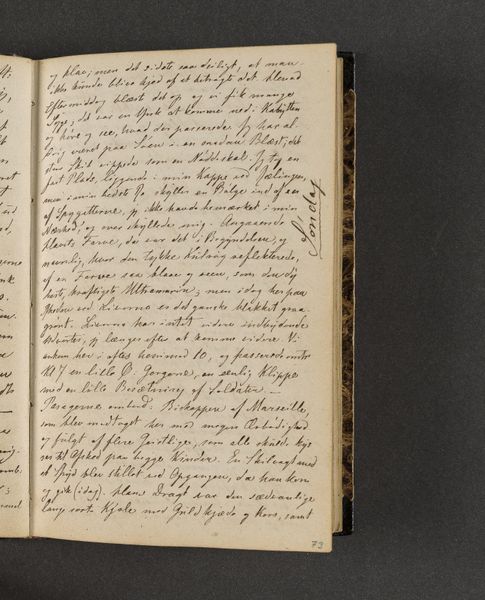 og klar; men det sidste saa deiligt, at man
ikke kunde blive kjed af at betragte det.
Eftermiddag blæste det op og vi fik mange
Syge; det var en Ynk at komme ned i Kahytten
og høre og see, hvad der passerede. Jeg har al-
drig været paa Søen i en saadan Blæst; det
store Skib vippede som en Nøddeskal. Jeg tog en
fast Plads, liggende i min Kappe ved Rælingen,
men i min bedste Ro skyller en Bølge ind af en
af Spygatterne, jeg ikke havde bemærket i min
Nærhed, og overskyllede mig. Angaaende
Havets Farve, da var det i Begyndelsen, og
navnlig, hvor den tykke
af en Farve saa klar og reen, som den dy-
beste, kraftigste Ultramarin; men i dag her paa
Rheden ved Livorno er det ganske blakket graa-
grønt. Livorno har intet videre indbydende
Udvortes, jeg længes efter at komme videre. Vi
ankom her i aftes henimod 10, og passerede omtr
Kl 7 en lille Ø: Gorgona, en eenlig Klippe
med en lille Besætning af Soldater. —
Passagerne ombord: Biskoppen af Marseille,
som blev modtaget her med megen Ærbødighed
og fulgt af flere Geistlige, som alle skulde kys-
ses til Afsked paa begge Kinder. En Skildvagt med
et Spyd blev stillet ved Opgangen, da han kom
og gik (i dag). Hans Dragt var den sædvanlige
lange sorte Kjole med Guldkjæde og Kors, samt
Søndag
73